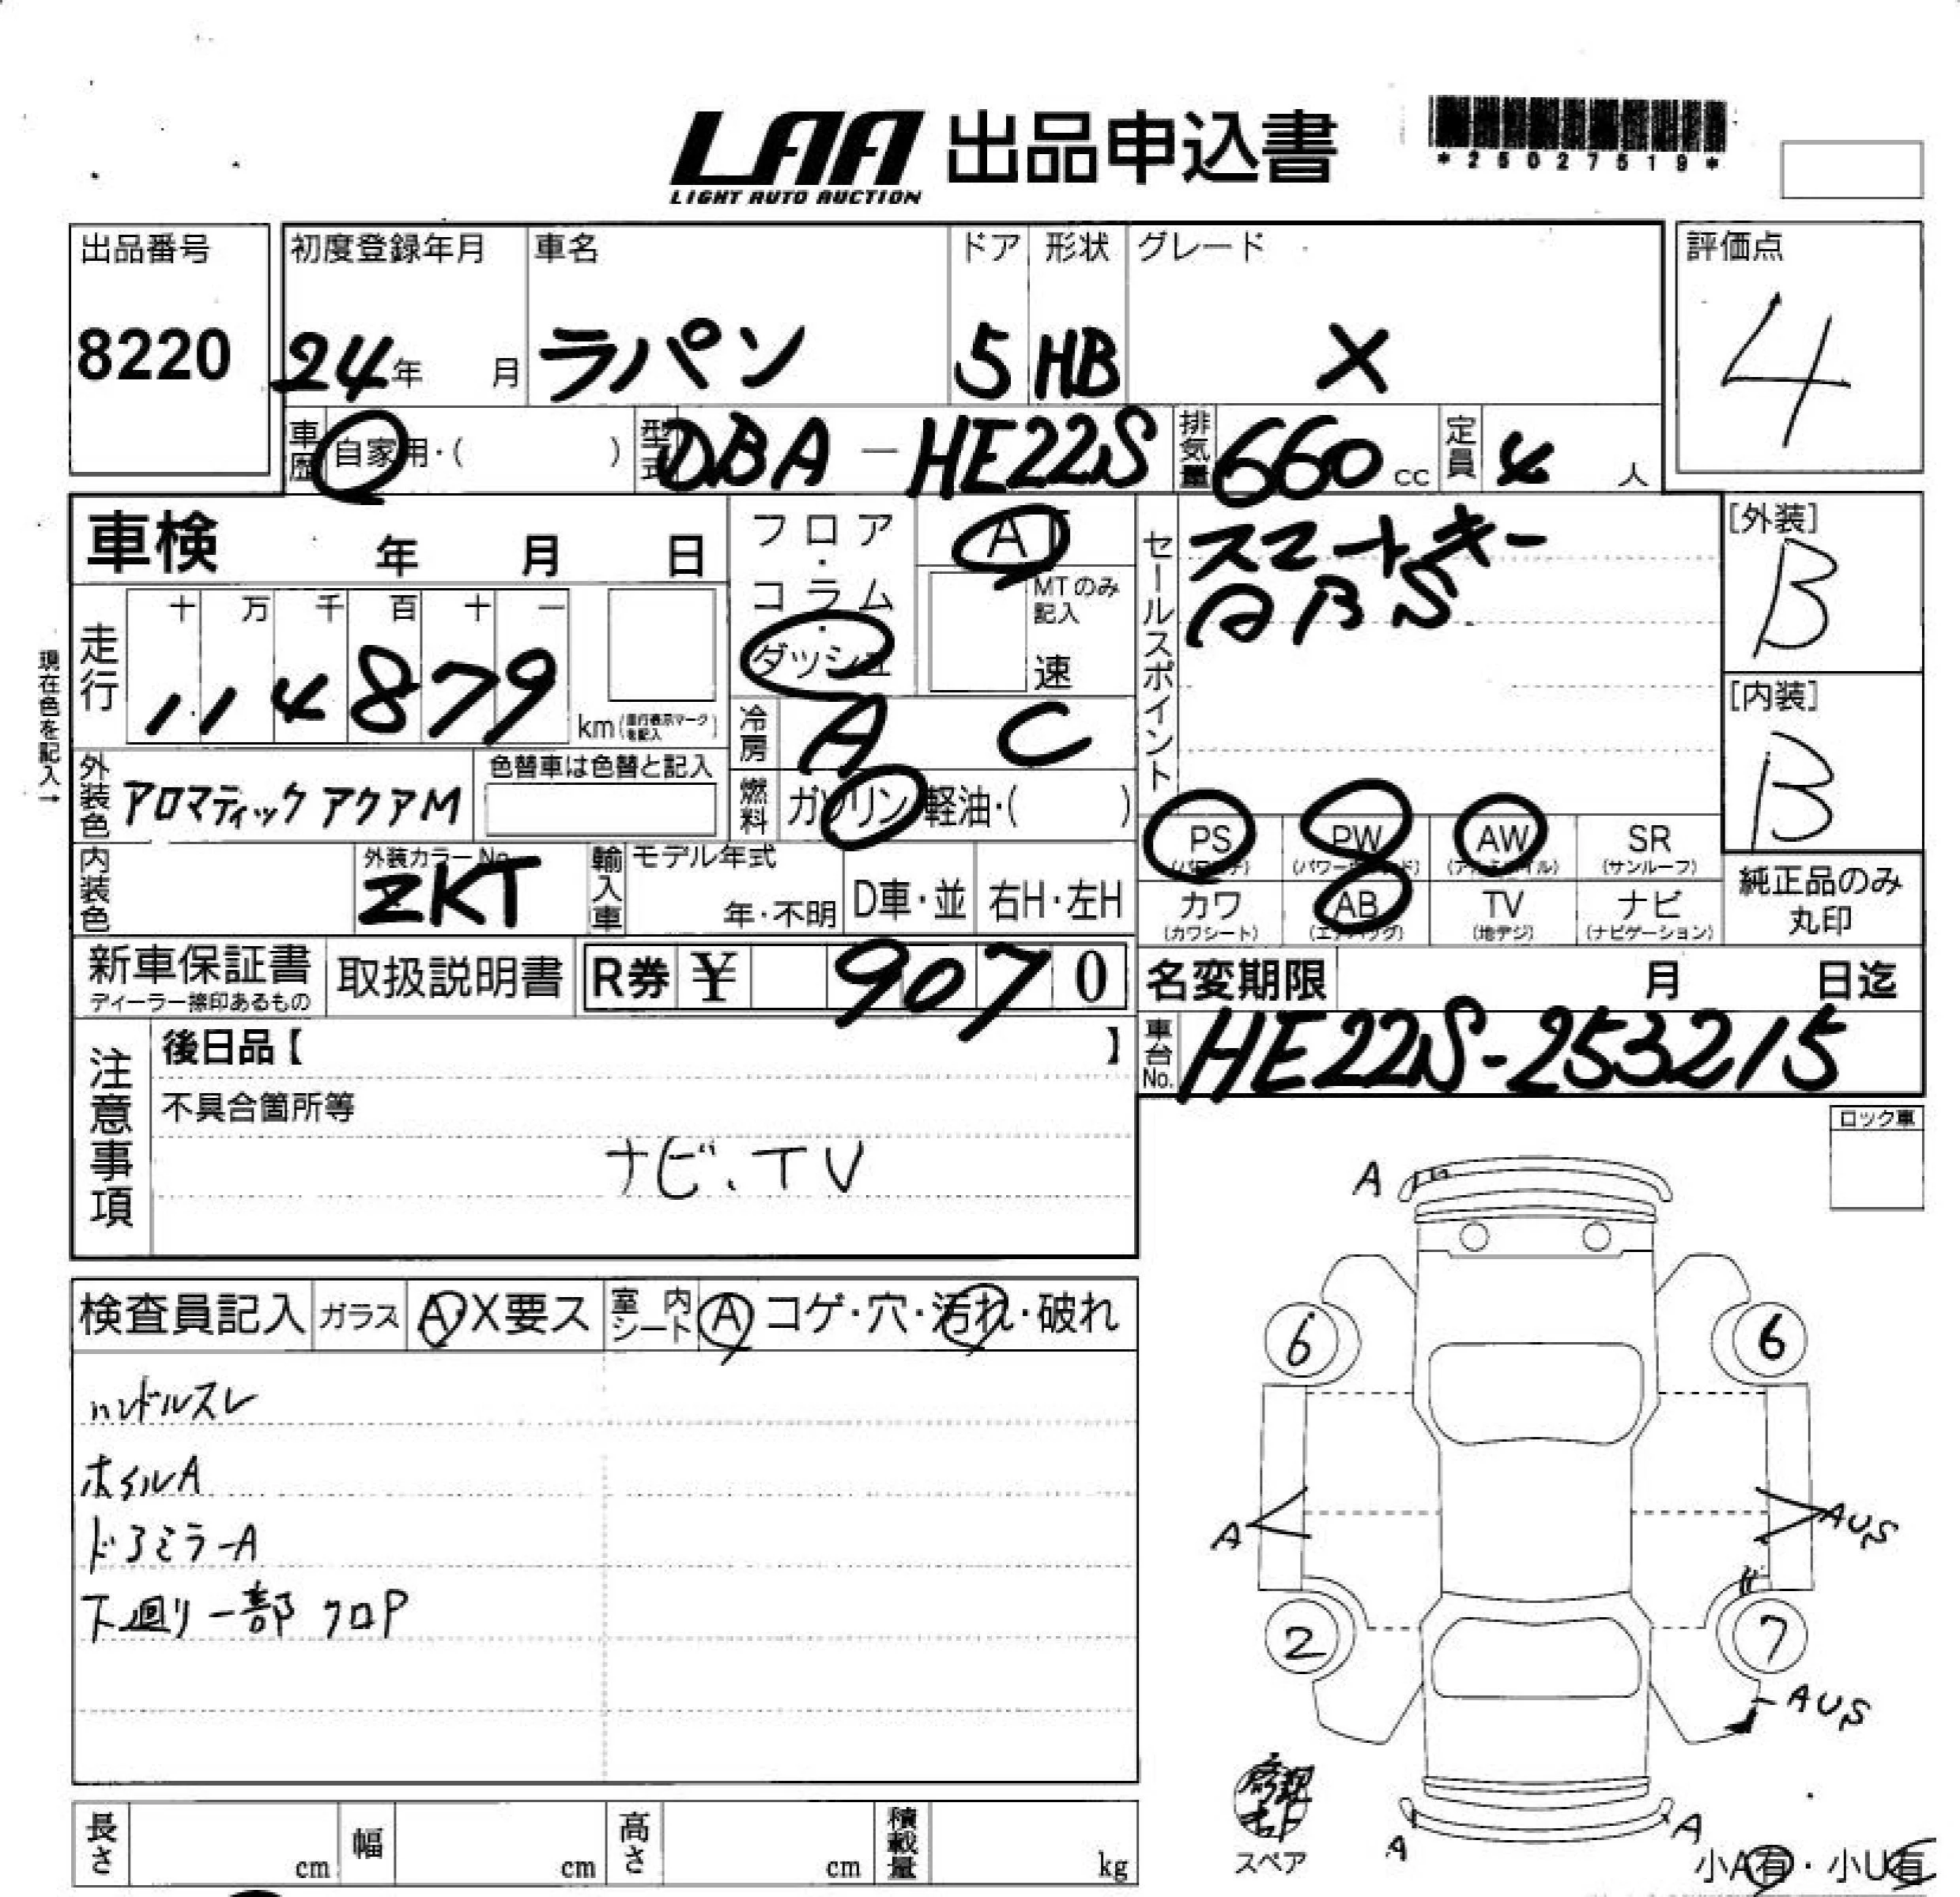 LAA 出品申込書
LIGHT AUTO AUCTION
*25027519*
出品番号 初度登録年月 車名 ドア 形状 グレード 評価点
8220 24年 月 ラパン 5 HB X 4
車歴 自家用・( ) 型式 DBA-HE22S 排気量 660 cc 定員 4 人
車検 年 月 日 フロア・コラム・ダッシュ AT
MTのみ記入 速
セールスポイント スマートキー
ABS
[外装] B
[内装] B
現在色を記入→
走行 十 万 千 百 十 一
114879 km(走行表示マークを記入)
冷房 AC
外装色 アロマティックアクアM 色替車は色替と記入
燃料 ガソリン 軽油・( )
PS (パワステ) PW (パワーウインド) AW (アルミホイル) SR (サンルーフ)
カワ (カワシート) AB (エアバッグ) TV (地デジ) ナビ (ナビゲーション)
純正品のみ丸印
内装色 外装カラーNo. ZKT 輸入車 モデル年式 年・不明 D車・並 右H・左H
新車保証書 ディーラー捺印あるもの 取扱説明書 R券 ¥ 9070
名変期限 月 日迄
車台No. HE22S-253215
注意事項 後日品【 】
不具合箇所等
ナビ、TV
ロック車
検査員記入 ガラス A・X要ス 室内シート A コゲ・穴・汚れ・破れ
ハンドルスレ
ホイルA
ドアミラーA
下廻り一部クロP
A
6 6
A AUS
2 7
AUS
修理キット
スペア
A A
小A有・小U有
長さ cm 幅 cm 高さ cm 積載量 kg